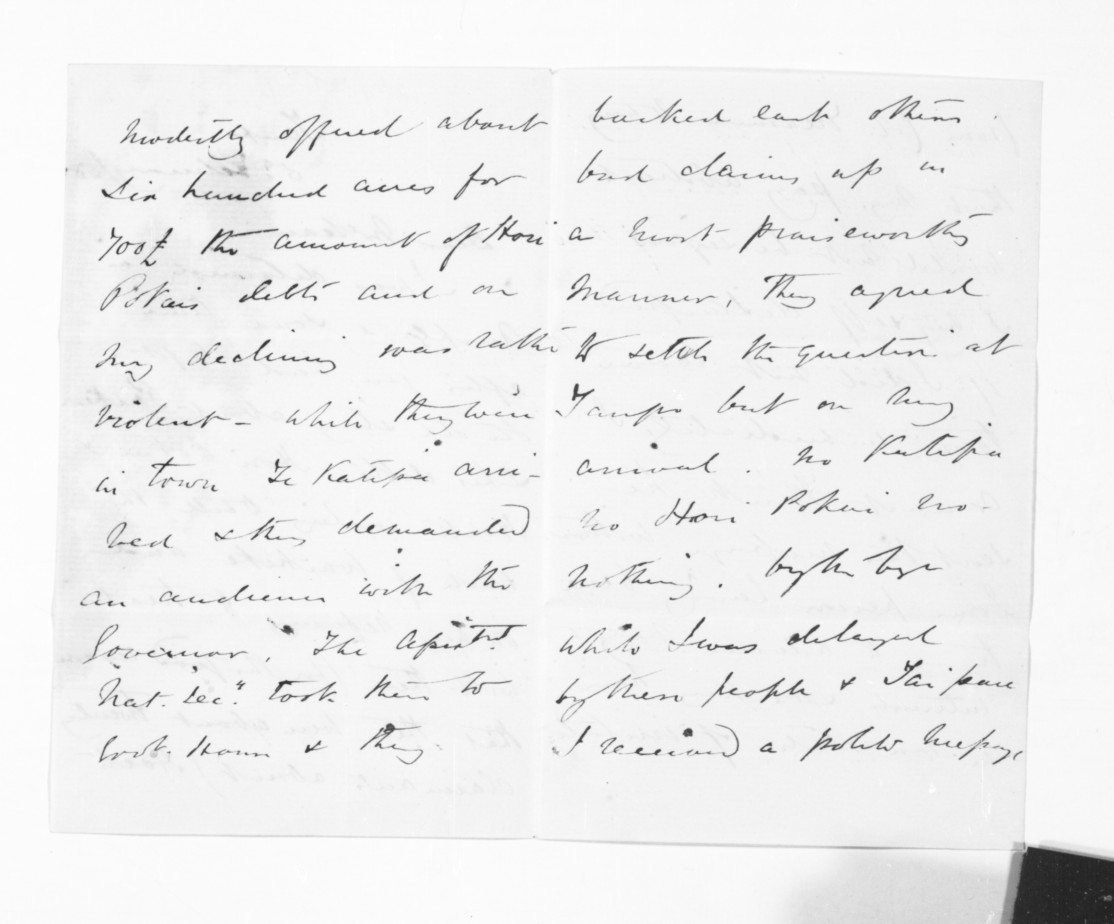 modestly offered about
six hundred acres for
700£ the amount of Hori
Pokais debts and on
my declining was rather
violent - while they were
in town Te Katipa arri-
ved & they demanded
an audience with the
Governor, The Assist.
Nat. Sec." took them to
Govt. House & they
backed each others
bad claims up in
a most praiseworthy
manner, They agreed
to settle the question at
Taupo but on my
arrival. no Katipa
no Hori Pokai no-
nothing. by the bye
while I was delayed
by these people & Taipare
I received a polite message